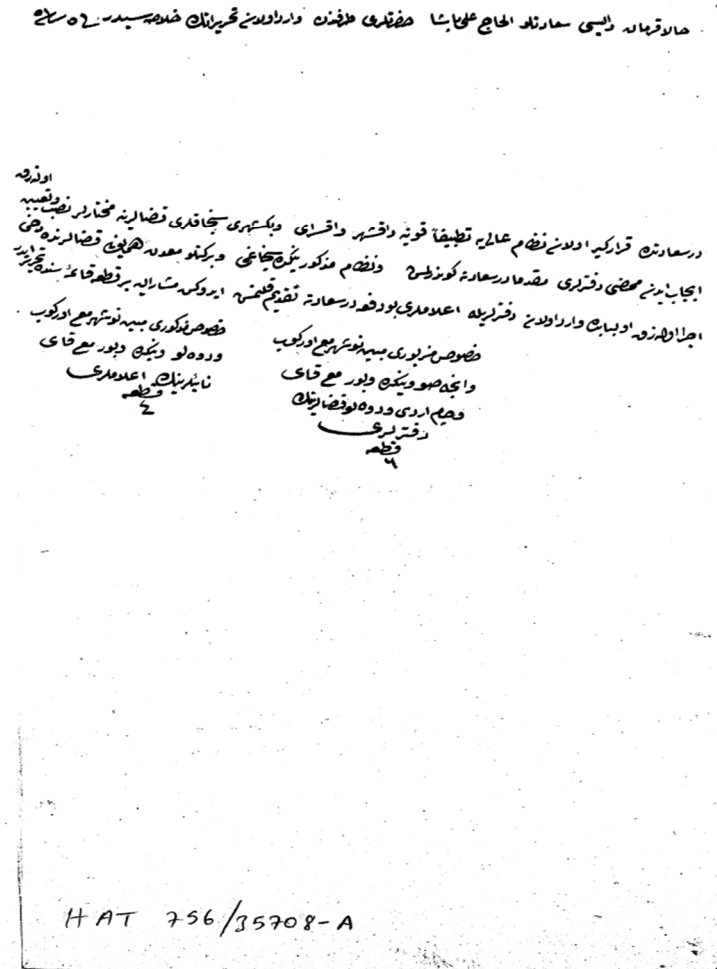 حالا قرمان والیسی سعادتلو الحاج علی پاشا حضرتلری طرفندن وارد اولان تحریراتك خلاصه سیدر
اولنه رق
درسعادتده قرارگیر اولان نظام عالی یه تطبیقا قونیه و اقشهر و اقسرای و بكشهری سنجاقلری قضالرینه مختارلر نصب و تعیین
ایجاب ایدن دفترلری مقدما درسعادته كوندرلمش و نظام مذكور نیكده سنجاغی و بركتلو معدن همایون قضالرنده دخی
اجرا اولنه رق اولبابده وارد اولان دفترلریله اعلاملری بو دفعه درسعادته تقدیم قلنمش ایدوكن مشار الیه بر قطعه قائمه سنده تحریر ایدر
خصوص مزبوری مبین نوشهر مع اوركوب
و نیكده و بور مع
و دوه لو قضالرینك
دفترلری
قطعه
٦
خصوص مذكوری مبین نوشهر مع اوركوب
و دوه لو و نیكده و بور مع
نائبلرینك اعلاملری
قطعه
٤
HAT 756/35708-A